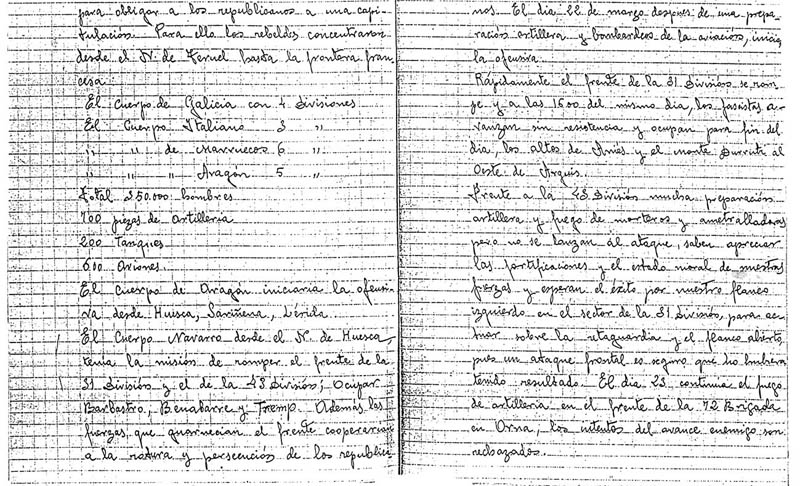 para obligar a los republicanos a una capi-
tulación. Para ello los rebeldes concentraron
desde el N. de Teruel hasta la frontera fran-
cesa
El Cuerpo de Galicia con 4 Divisiones
El Cuerpo Italiano 3 "
" " de Marruecos 6 "
" " Aragón 5 "
Total 250.000 hombres
700 piezas de Artilleria
200 Tanques
600 Aviones.
El Cuerpo de Aragón iniciaria la ofensi-
va desde Huesca, Sariñena, Lérida.
El Cuerpo Navarro desde el N. de Huesca,
tenia la misión de romper el frente de la
31 División y el de la 43 División; Ocupar
Barbastro, Benabarre y Tremp. Además las
fuerzas que guarnecian el frente cooperarian
a la rotura y persecución de los republica
nos. El dia 22 de marzo despues de una prepa-
ración artillera y bombardeos de la aviación, inicia
la ofensiva.
Rápidamente el frente de la 31 División se rom-
pe y a las 1600 del mismo dia, los fascistas a-
vanzan sin resistencia y ocupan para fin del
dia, los altos de y el monte al
Oeste de Arguis.
Frente a la 43 División mucha preparación
artillera y fuego de morteros y ametralladoras
pero no se lanzan al ataque, saben apreciar
las fortificaciones y el estado moral de nuestras
fuerzas y esperan el éxito por nuestro flanco
izquierdo en el sector de la 31 División, para ac-
tuar sobre la retaguardia y el flanco abierto,
pues un ataque frontal es seguro que no hubiera
tenido resultado. El dia 23, continua el fuego
de artilleria en el frente de la 72 Brigada
en Orna, los intentos del avance enemigo son
rechazados.